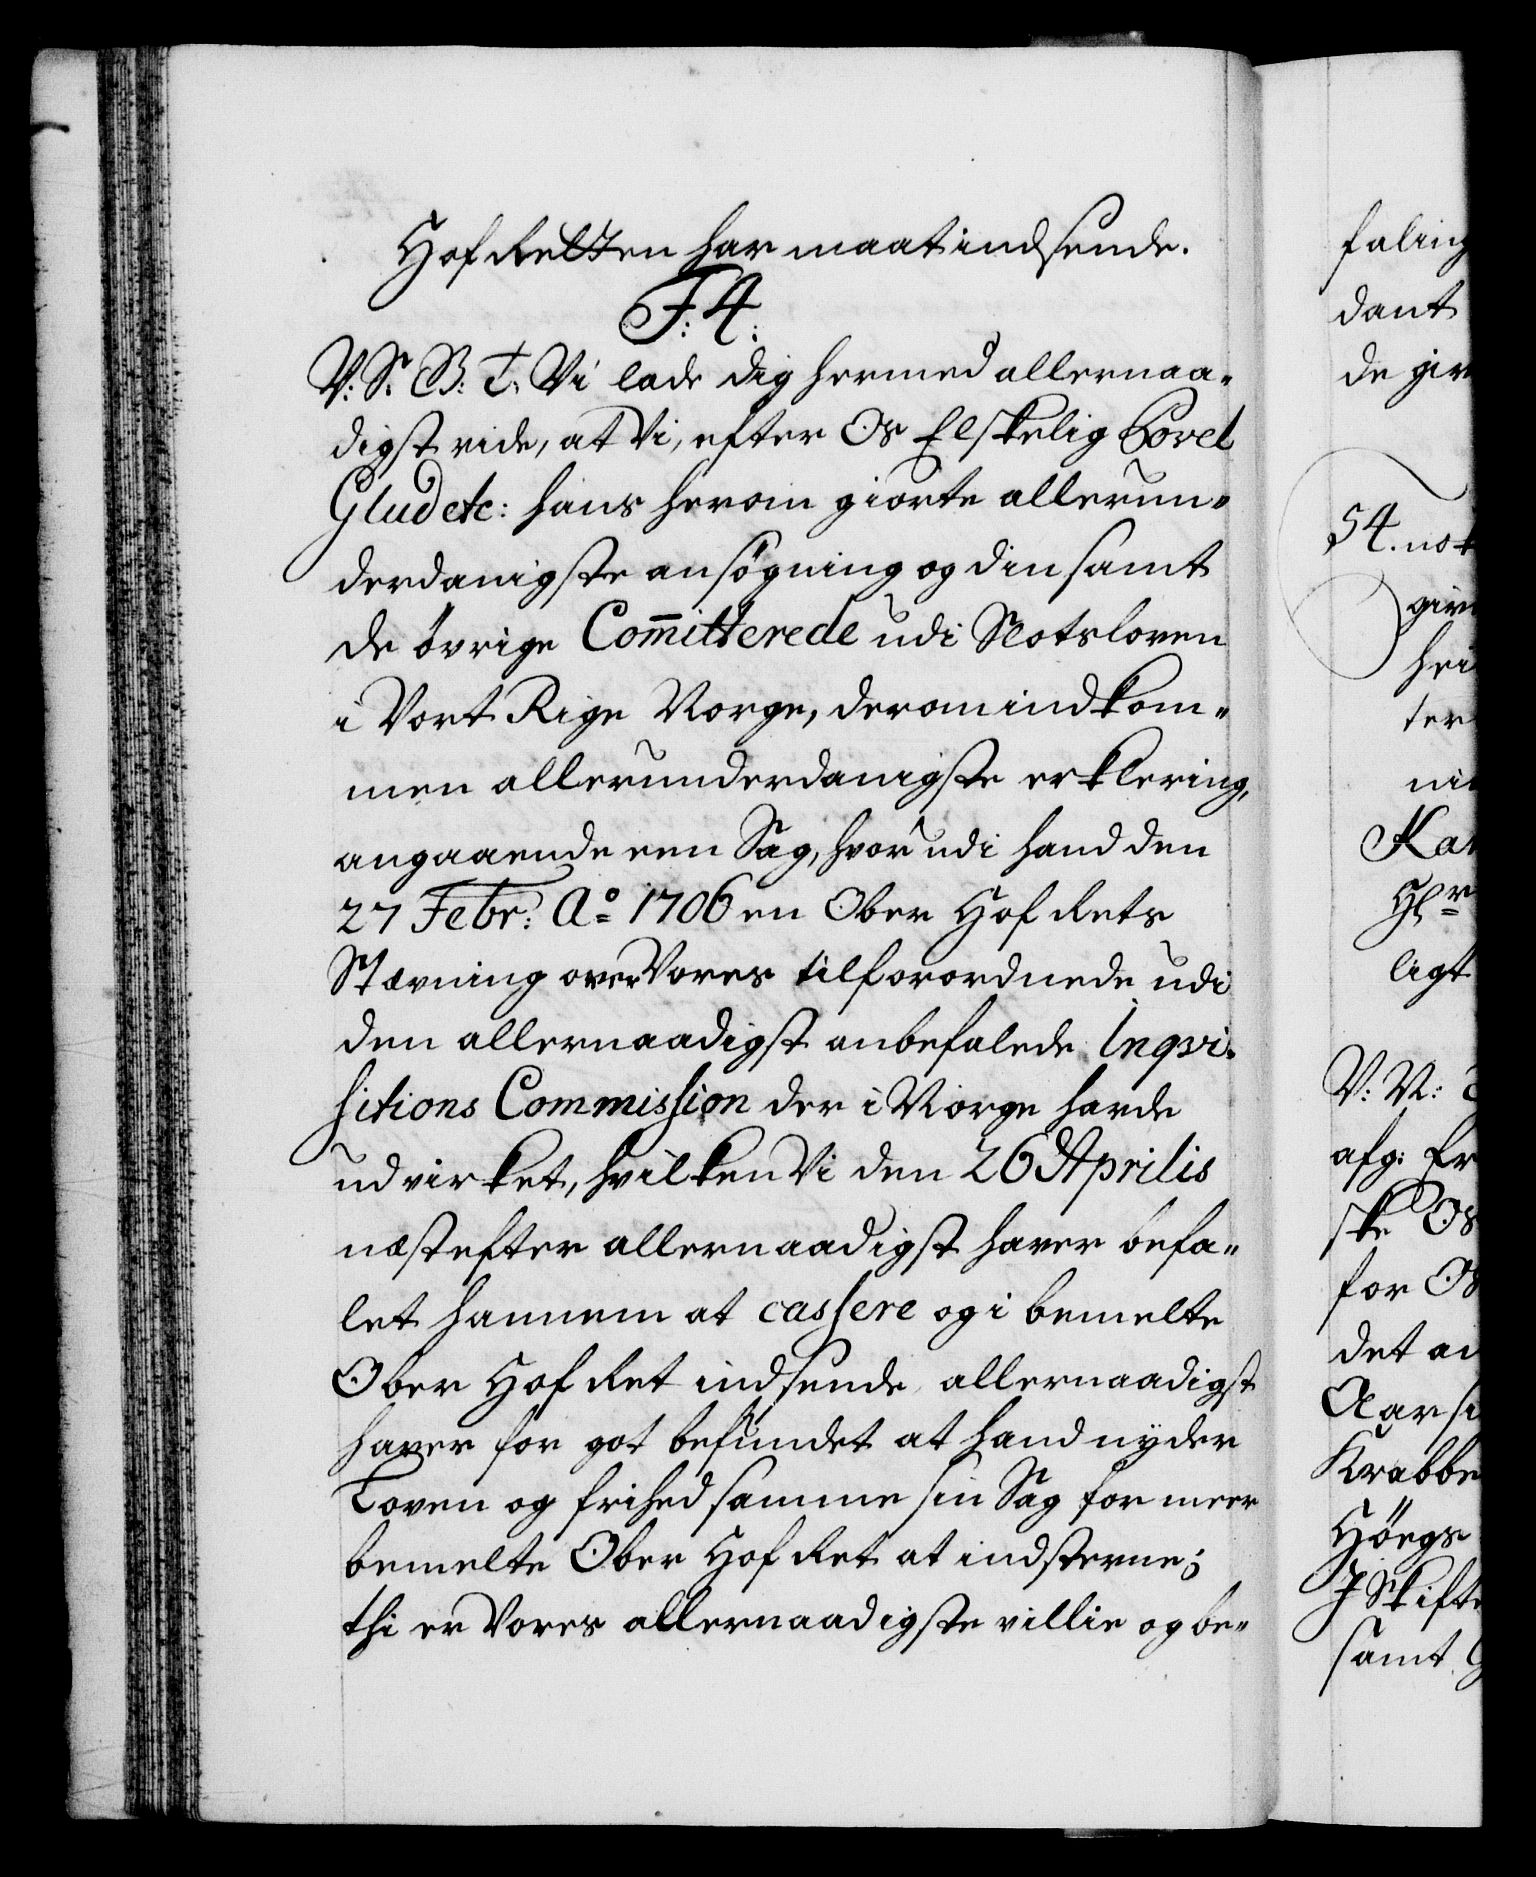 Hof Retten har maat indsende.
F: 4.
V: S: B: T: Vi lade dig hermed allernaa-
digst vide, at Vi, efter Os Elskelig Povel
Glud etc: hans herom giorte allerun-
derdanigste ansøgning og din samt
de øvrige Com̄itterede udi Slotsloven
i Vort Rige Norge, derom indkom-
men allerunderdanigste erklering,
angaaende een Sag, hvor udi hand den
27 Febr: Aº 1706 en Ober Hof Rets
Stævning over Vores tilforordnede udi
den allernaadigst anbefalede Inqvi-
sitions Commission der i Norge harde
udvirket, hvilken Vi den 26 Aprilis
næstefter allernaadigst haver befa-
let hannem at cassere og i bemelte
Ober Hof Ret indsende, allernaadigst
haver for got befundet at hand nyder
Loven og frihed samme sin Sag for meer
bemelte Ober Hof Ret at indsterne;
thi er Vores allernaadigste villie og be-
faling
dant
de giv
54. not
giv
hei
ter
ni
Kar
Hlr
ligt
V: V:
afg: Er
ske Os
for Os
det a
Aars
Krabbe
Høegs
J Skifte
samt